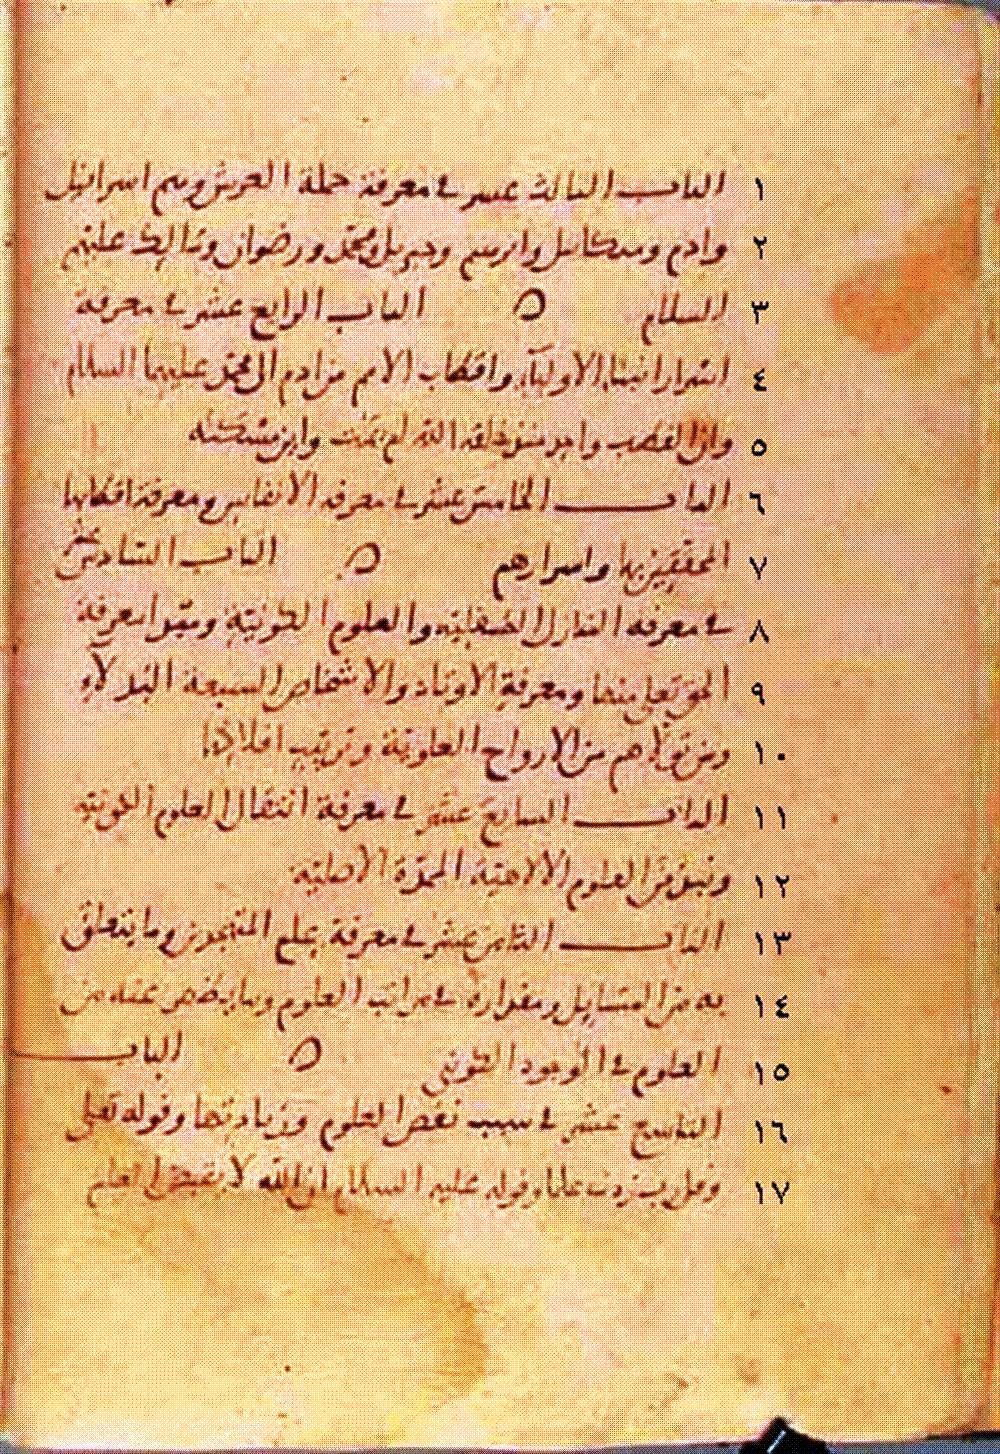 ١ الباب الثالث عشر في معرفة حملة العرش وهم اسرافيل
٢ وادم وميكائيل وابرهيم وجبريل ومحمد ورضوان ومالك عليهم
٣ السلام ه الباب الرابع عشر في معرفة
٤ اسرار انبيا الاوليآء واقطاب الامم من ادم الى محمد عليهما السلام
٥ وان القطب واحد منذ خلقه الله لم يمت واين مسكنه
٦ الباب الخامس عشر في معرفة الانفاس ومعرفة اقطابها
٧ المحققين بها واسرارهم ه الباب السادس عشر
٨ في معرفة المنازل السفلية والعلوم الكونية ومبدا معرفة
٩ الحق تعلى منها ومعرفة الاوتاد والاشخاص السبعة البدلاء
١٠ ومن تولاهم من الارواح العلوية وترتيب افلاكها
١١ الباب السابع عشر في معرفة انتقال العلوم الكونية
١٢ ونبذ من العلوم الالاهية الممدة الاصلية
١٣ الباب الثامن عشر في معرفة علم المتهجدين وما يتعلق
١٤ به من المسايل ومقداره في مراتب العلوم وما يظهر عنه من
١٥ العلوم في الوجود الكوني ه الباب
١٦ التاسع عشر في سبب نقص العلوم وزيادتها وقوله تعلى
١٧ وقل رب زدني علما وقوله عليه السلام ان الله لا يقبض العلم